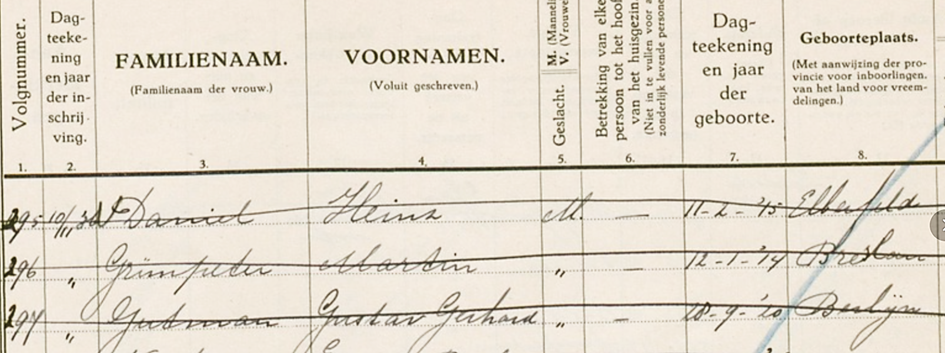 Volgnummer.
Dag-
teeke-
ning
en jaar
der in-
schrij-
ving.
FAMILIENAAM.
(Familienaam der vrouw.)
VOORNAMEN.
(Voluit geschreven.)
Geslacht.
M. (Mannel
V. (Vrouwe
Betrekking van elke
persoon tot het hoof
van het huisgezin.
(Niet in te vullen voor a
zonderlijk levende persone
Dag-
teekening
en jaar
der
geboorte.
Geboorteplaats.
(Met aanwijzing der pro-
vincie voor inboorlingen.
van het land voor vreem-
delingen.)
1. 2. 3. 4. 5. 6. 7. 8.
295 Daniel Heinz M. — 11-2-'15 Elberfeld
296 „ Grümpeter Martin „ — 12-1-'14 Breslau
297 „ Gutman Gustav Gerhard „ — 28-9-'20 Berlijn